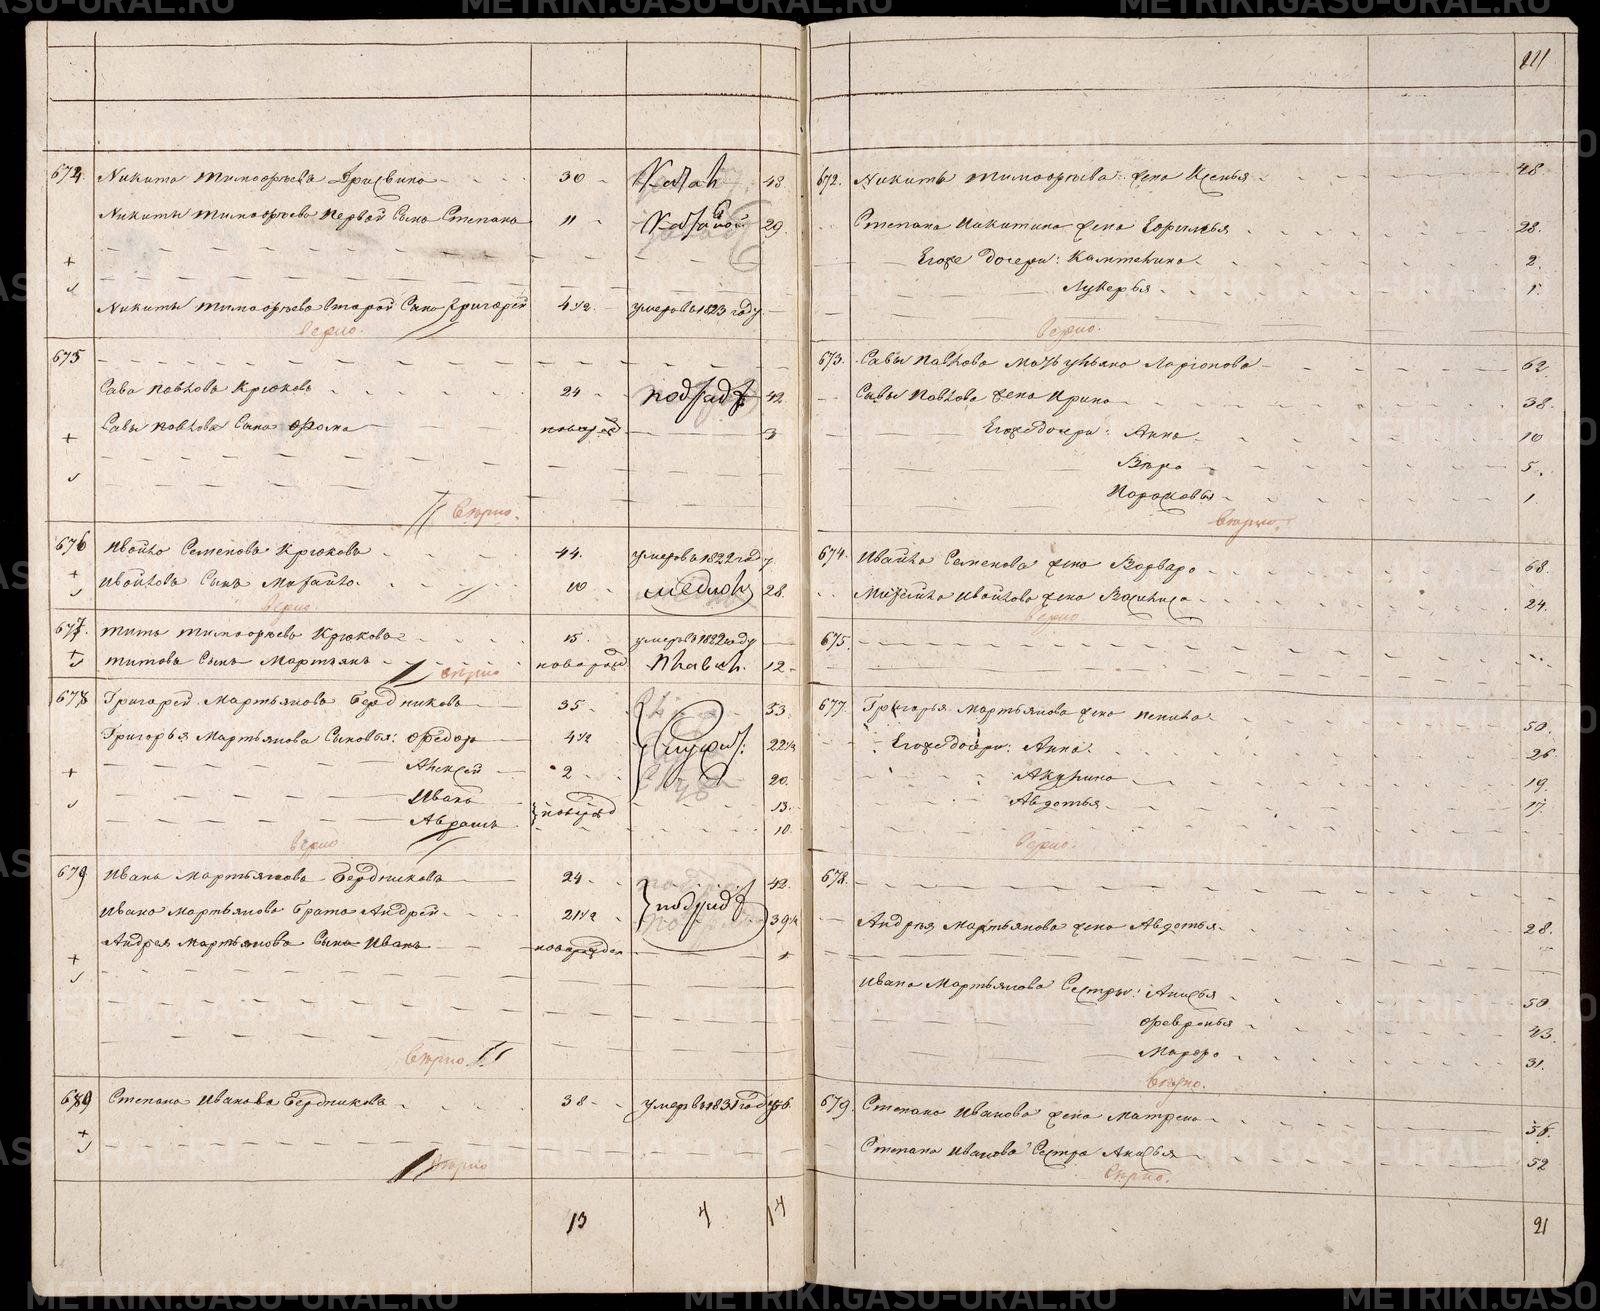 METRIKI.GASO-URAL.RU
111
674. Никита Тимофѣева 30 48.
Никиты Тимофѣева Первой Сынъ Степанъ 11 29.
Никиты Тимофѣева Второй Сынъ Григорей 4 1/2 умеръ в 1823 году
верно.
675
Сава Павлова Крюковъ 24 42.
Савы Павлова Сынъ Фома новорож 3
верно.
676 Ивайло Семенова Крюковъ 44. умеръ в 1822 году
Ивайлова Сынъ Михайло 10 28.
верно
677. Титъ Тимофѣева Крюковъ 15. умеръ в 1822 году
Титова Сынъ Мартьянъ новорожд 12
верно
678 Григорей Мартьянова Бердниковъ 35 53.
Григорья Мартьянова Сыновья: Федоръ 4 1/2 22 1/2
Алексей 2 20.
Иванъ новорожд 13.
Абрамъ 10.
верно
679 Иванъ Мартьянова Бердниковъ 24 42.
Ивана Мартьянова братъ Андрей 21 1/2 39 1/2
Андрея Мартьянова Сынъ Иванъ новорожден 1
верно.
680 Степанъ Иванова Бердниковъ 38 умеръ в 1831 году 56.
верно
13 4 14
672. Никиты Тимофѣева жена Ксенья 48
Степана Никитина жена 28.
Егоже дочери: 2.
Лукерья 1.
верно.
673. Савы Павлова Ларіонова 62
Савы Павлова жена Ирина 38.
Егоже дочери: Анна 10
Вѣра 5.
Парасковья 1.
верно.
674. Ивайла Семенова жена Варвара 68.
Михайла Ивайлова жена Василиса 24.
верно
675.
677. Григорья Мартьянова жена 50.
Егоже дочери: Анна. 26
Акулина 19.
Авдотья 17.
верно.
678.
Андрея Мартьянова жена Авдотья 28.
Ивана Мартьянова Сестры: Анисья 50
Февронья 43.
Марфа 31.
верно.
679. Степана Иванова жена Матрена 56.
Степана Иванова Сестра Анисья 52
верно.
21